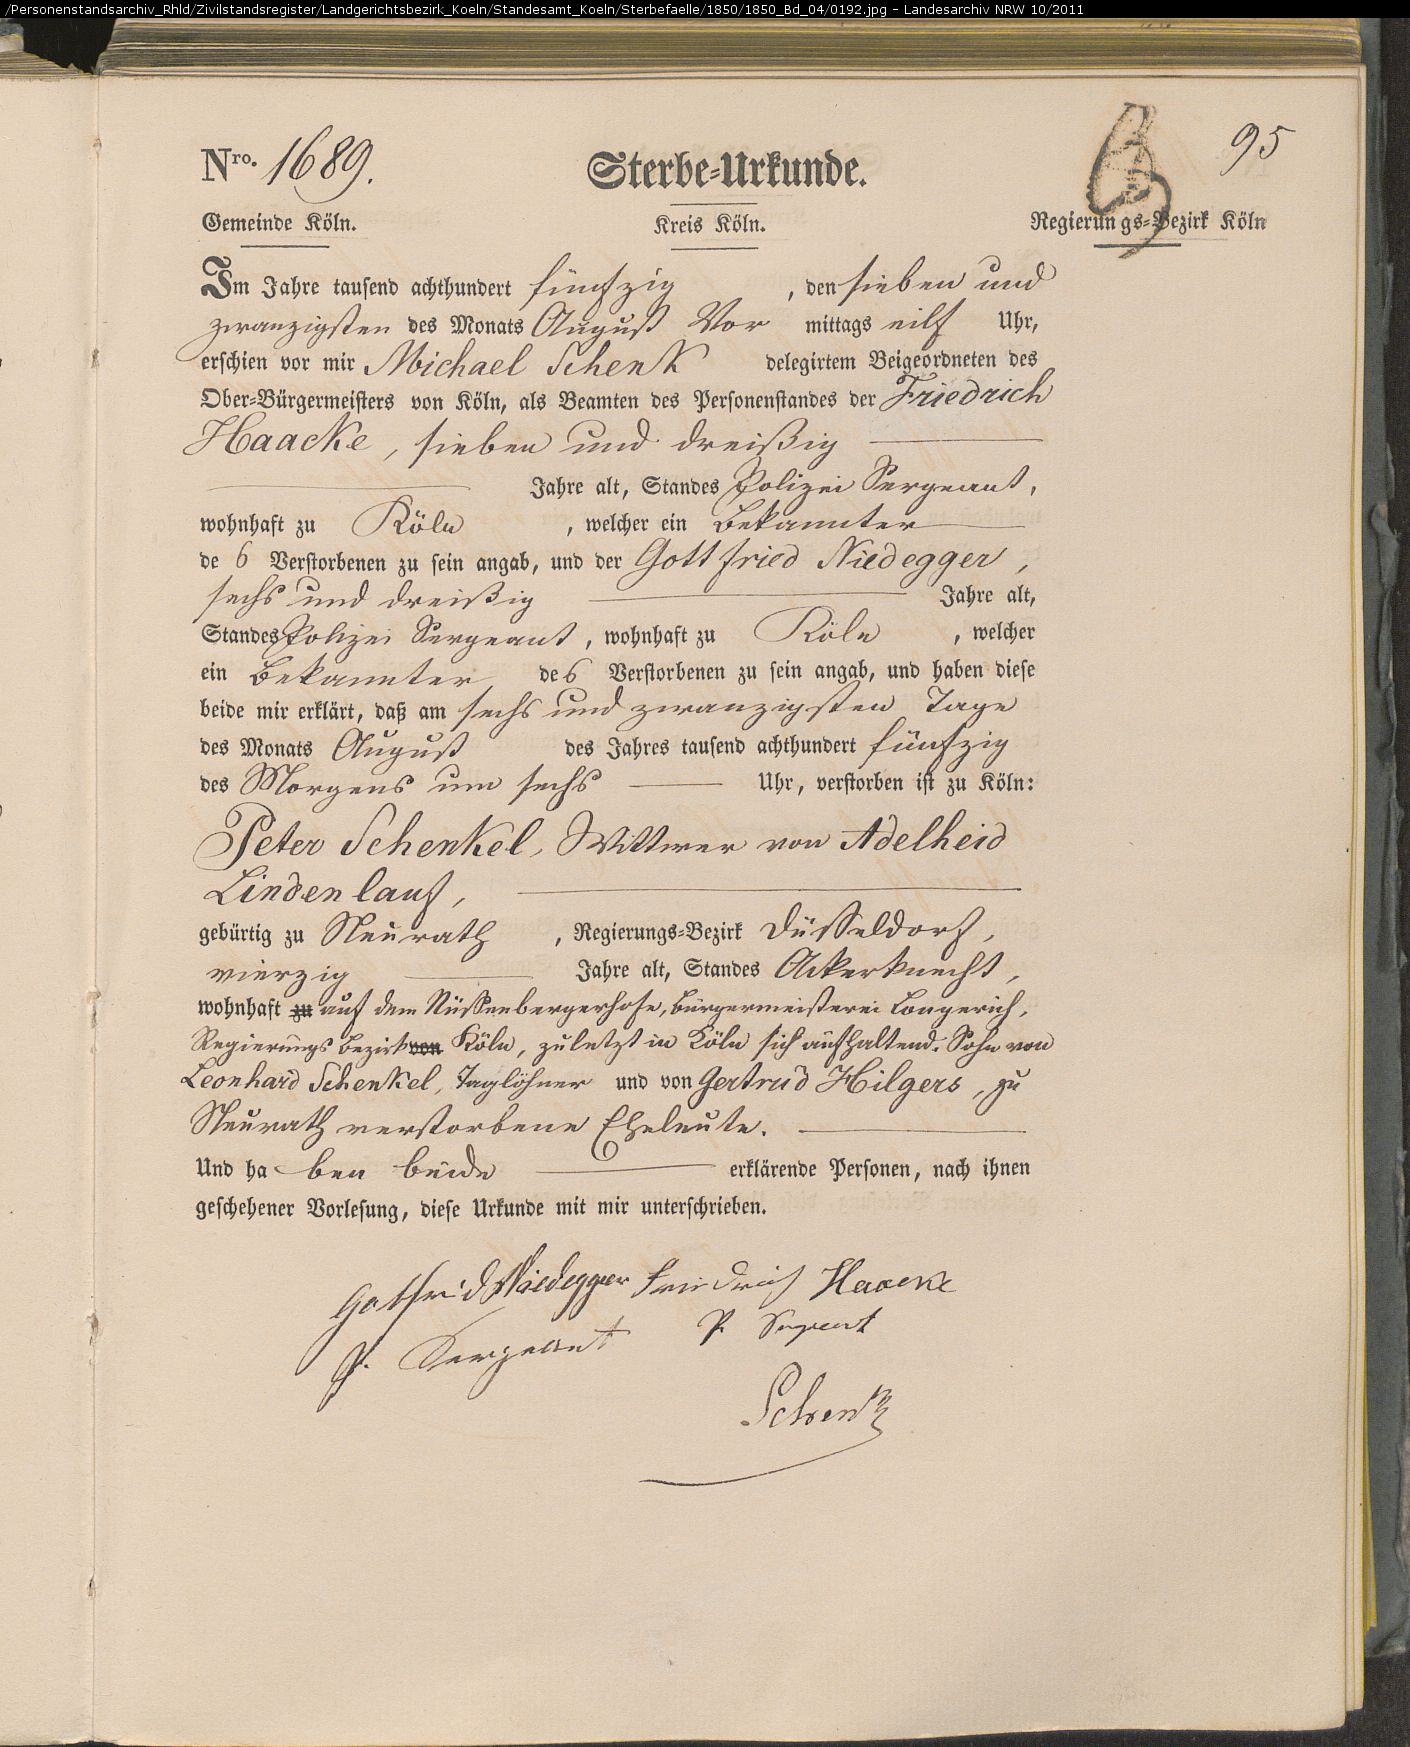 /Personenstandsarchiv_Rhld/Zivilstandsregister/Landgerichtsbezirk_Koeln/Standesamt_Koeln/Sterbefaelle/1850/1850_Bd_04/0192.jpg - Landesarchiv NRW 10/2011
95
Nro. 1689. Sterbe-Urkunde.
Gemeinde Köln. Kreis Köln. Regierungs-Bezirk Köln
Im Jahre tausend achthundert fünfzig, den sieben und
zwanzigsten des Monats August Vor mittags eilf Uhr,
erschien vor mir Michael Schenk delegirtem Beigeordneten des
Ober-Bürgermeisters von Köln, als Beamten des Personenstandes der Friedrich
Haacke, sieben und dreißig
Jahre alt, Standes Polizei Sergeant,
wohnhaft zu Köln, welcher ein Bekannter
des Verstorbenen zu sein angab, und der Gottfried Niedegger,
sechs und dreißig Jahre alt,
Standes Polizei Sergeant, wohnhaft zu Köln, welcher
ein Bekannter des Verstorbenen zu sein angab, und haben diese
beide mir erklärt, daß am sechs und zwanzigsten Tage
des Monats August des Jahres tausend achthundert fünfzig
des Morgens um sechs Uhr, verstorben ist zu Köln:
Peter Schenkel, Wittwer von Adelheid
Lindenlauf,
gebürtig zu Neurath, Regierungs-Bezirk Düsseldorf,
vierzig Jahre alt, Standes Ackerknecht,
wohnhaft zu auf dem Nüssenbergerhofe, Bürgermeisterei Longerich,
Regierungs Bezirk von Köln, zuletzt in Köln sich aufhaltend. Sohn von
Leonhard Schenkel, Taglöhner und von Gertrud Hilgers, zu
Neurath verstorbene Eheleute.
Und ha ben beide erklärende Personen, nach ihnen
geschehener Vorlesung, diese Urkunde mit mir unterschrieben.
Gotfrid Niedegger Friedrich Haacke
P. Sergeant P. Sergeant
Schenk